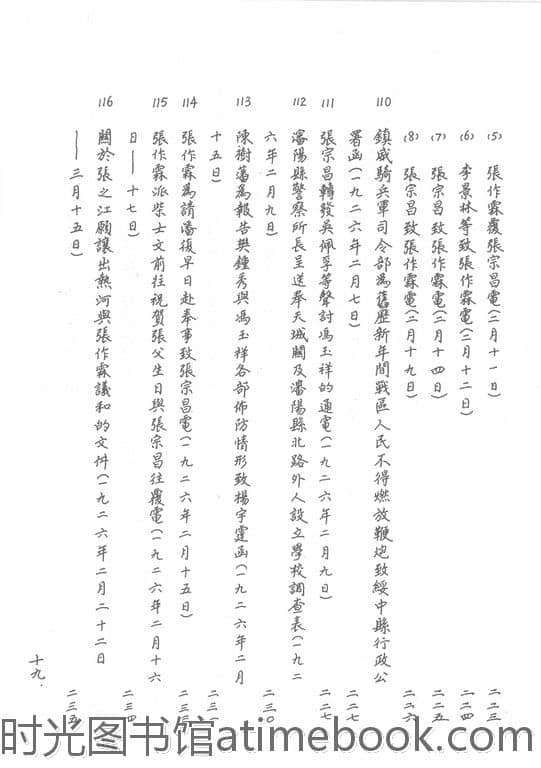 (5) 張作霖覆張宗昌電(二月十一日) 二二三
(6) 李景林等致張作霖電(二月十二日) 二二四
(7) 張宗昌致張作霖電(二月十四日) 二二五
(8) 張宗昌致張作霖電(二月十九日) 二二六
110 鎮威騎兵軍司令部為舊歷新年間戰區人民不得燃放鞭炮致綏中縣行政公
署函(一九二六年二月七日) 二二七
111 張宗昌轉發吳佩孚等聲討馮玉祥的通電(一九二六年二月九日) 二二七
112 瀋陽縣警察所長呈送奉天城關及瀋陽縣北路外人設立學校調查表(一九二
六年二月九日) 二三〇
113 陳樹藩為報告樊鍾秀與馮玉祥各部佈防情形致楊宇霆函(一九二六年二月
十五日) 二三一
114 張作霖為請潘復早日赴奉事致張宗昌電(一九二六年二月十五日) 二三三
115 張作霖派柴士文前往祝賀張父生日與張宗昌往覆電(一九二六年二月十六
日——十七日) 二三四
116 關於張之江願讓出熱河與張作霖議和的文件(一九二六年二月二十二日
——三月十五日) 二三五
十九.
时光图书馆atimebook.com